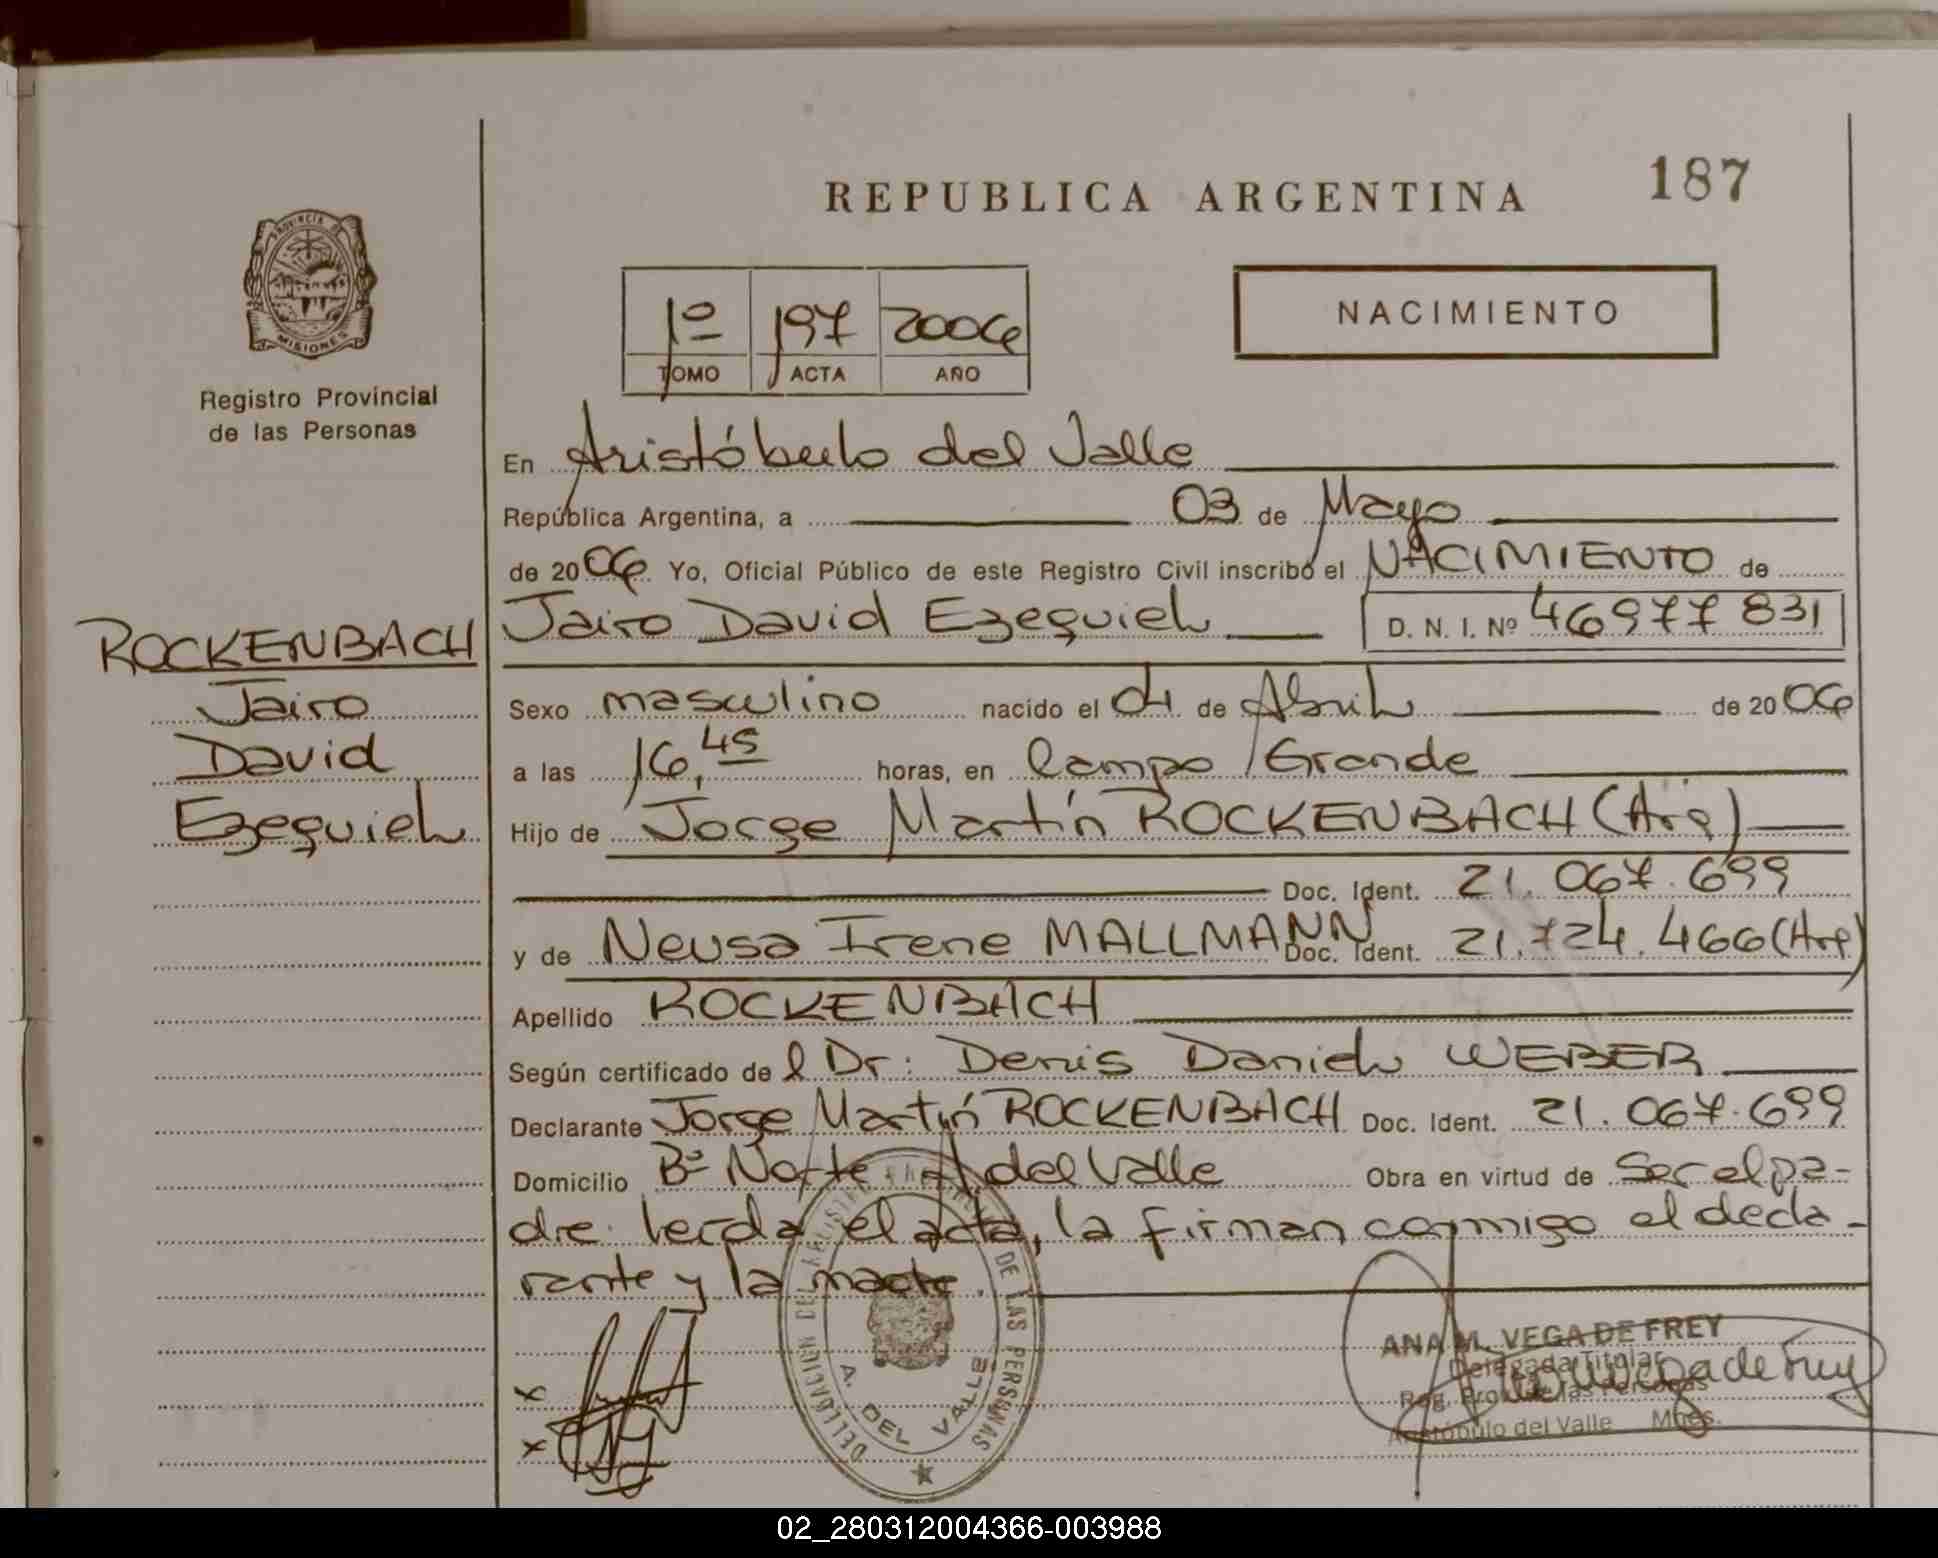 REPUBLICA ARGENTINA
187
PROVINCIA DE
MISIONES
Registro Provincial
de las Personas
1º 197 2006
TOMO ACTA AÑO
NACIMIENTO
En Aristóbulo del Valle
República Argentina, a 03 de Mayo
de 2006 Yo, Oficial Público de este Registro Civil inscribo el NACIMIENTO de
Jairo David Ezequiel D. N. I. Nº 46977831
ROCKENBACH
Jairo
David
Ezequiel
Sexo masculino nacido el 04 de Abril de 2006
a las 16,45 horas, en Campo Grande
Hijo de Jorge Martín ROCKENBACH (Arg)
Doc. Ident. 21.067.699
y de Neusa Irene MALLMANN Doc. Ident. 21.724.466 (Arg)
Apellido ROCKENBACH
Según certificado de l Dr: Denis Daniel WEBER
Declarante Jorge Martín ROCKENBACH Doc. Ident. 21.067.699
Domicilio Bº Norte A. del Valle Obra en virtud de Ser el pa-
dre. Leída el acta, la firman conmigo el decla-
rante y la madre.
DELEGACION DEL REGISTRO PROVINCIAL DE LAS PERSONAS
A. DEL VALLE
ANA M. VEGA DE FREY
Delegada Titular
Reg. Prov. de las Personas
Aristóbulo del Valle Mnes.
02_280312004366-003988